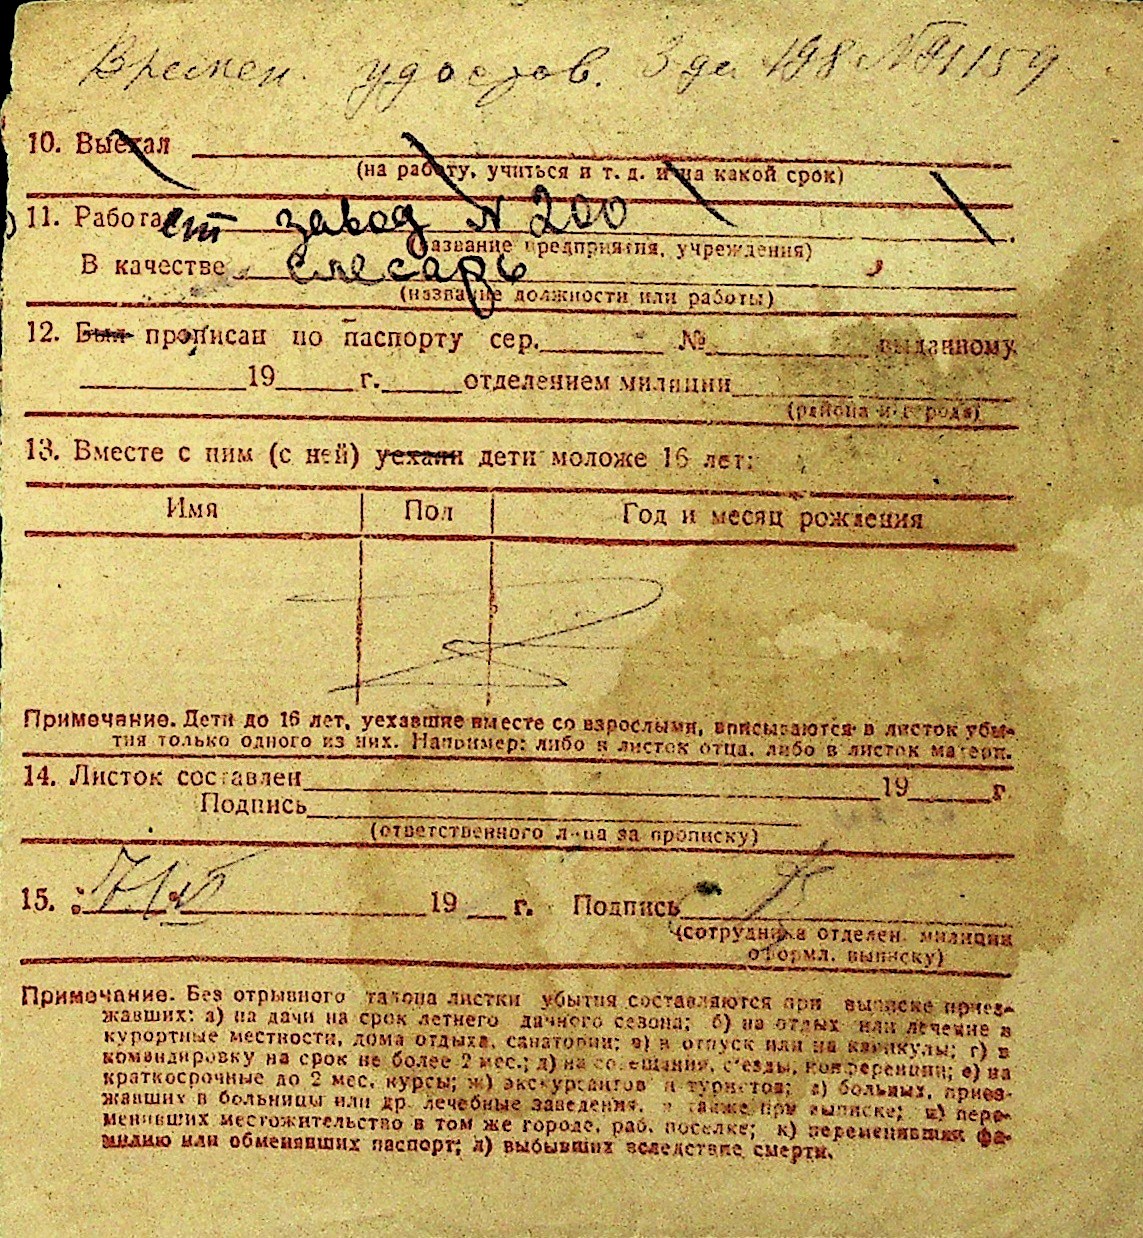 Времен. удостов.
10. Выехал
(на работу, учиться и т. д. и на какой срок)
11. Работает завод N 200
(название предприятия, учреждения)
В качестве слесарь
(название должности или работы)
12. Был прописан по паспорту сер. № выданному
19 г. отделением милиции
(района и города)
13. Вместе с ним (с ней) уехали дети моложе 16 лет:
Имя Пол Год и месяц рождения
Примечание. Дети до 16 лет, уехавшие вместе со взрослыми, вписываются в листок убы-
тия только одного из них. Например: либо в листок отца, либо в листок матери.
14. Листок составлен 19 г
Подпись
(ответственного лица за прописку)
15. 19 г. Подпись
(сотрудника отделен. милиции
оформл. выписку)
Примечание. Без отрывного талона листки убытия составляются при выписке приез-
жавших: а) на дачи на срок летнего дачного сезона; б) на отдых или лечение в
курортные местности, дома отдыха, санатории; в) в отпуск или на каникулы; г) в
командировку на срок не более 2 мес.; д) на совещания, съезды, конференции; е) на
краткосрочные до 2 мес. курсы; ж) экскурсантов и туристов; з) больных, приез-
жавших в больницы или др. лечебные заведения, а также при выписке; и) пере-
менивших местожительство в том же городе, раб. поселке; к) переменивших фа-
милию или обменявших паспорт; л) выбывших вследствие смерти.